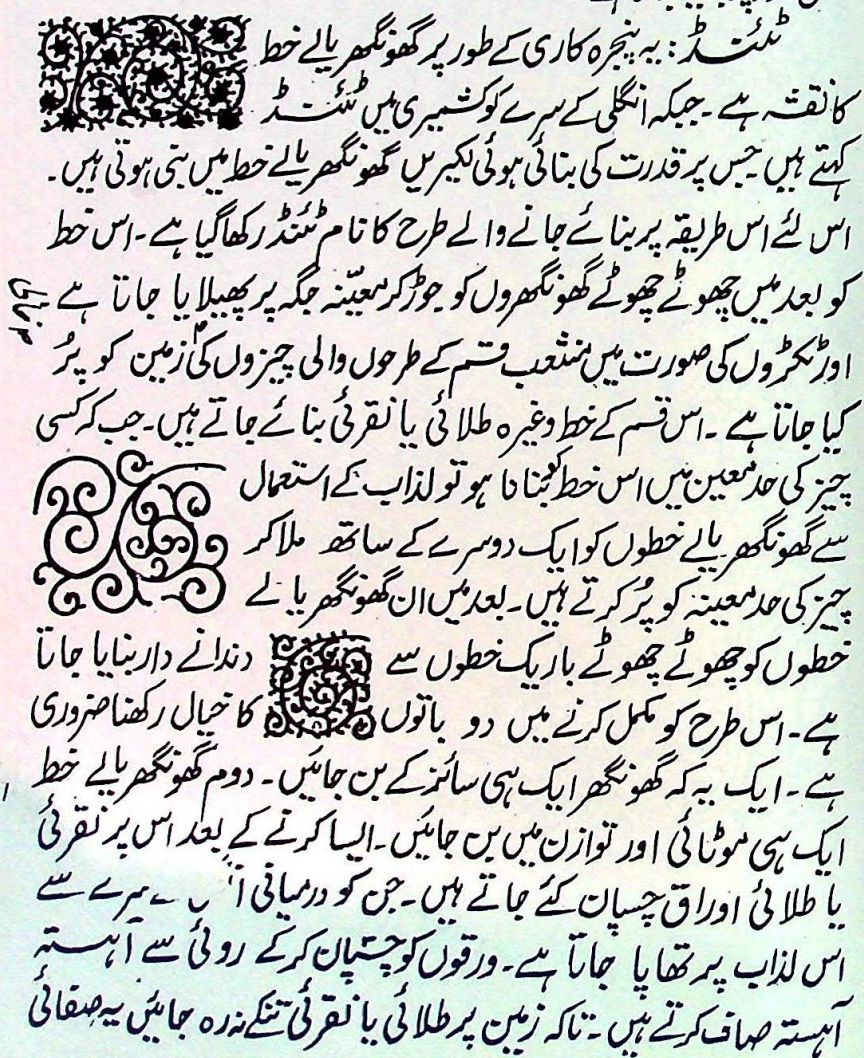 ٹُنٹڈ : یہ پنجرہ کاری کے طور پر گھونگھریالے خط
کا نقشہ ہے ۔ جبکہ انگلی کے سرے کو کشمیری میں ٹُنٹڈ
کہتے ہیں جس پر قدرت کی بنائی ہوئی لکیریں گھونگھریالے خط میں بنی ہوتی ہیں ۔
اس لئے اس طریقہ پر بنائے جانے والے طرح کا نام ٹُنٹڈ رکھا گیا ہے ۔ اس خط
کو بعد میں چھوٹے چھوٹے گھونگھروں کو جوڑ کر معیّنہ جگہ پر پھیلایا جاتا ہے
اور ٹکڑوں کی صورت میں منشعب قسم کے طرحوں والی چیزوں کی زمین کو پُر
کیا جاتا ہے ۔ اس قسم کے خط وغیرہ طلائی یا نقرئی بنائے جاتے ہیں ۔ جب کہ کسی
چیز کی حد معین میں اس خط کو بنانا ہو تو لذاب کے استعمال
سے گھونگھریالے خطوں کو ایک دوسرے کے ساتھ ملا کر
چیز کی حد معینہ کو پُر کرتے ہیں ۔ بعد میں ان گھونگھریالے
خطوں کو چھوٹے چھوٹے باریک خطوں سے دندانے دار بنایا جاتا
ہے ۔ اس طرح کو مکمل کرنے میں دو باتوں کا خیال رکھنا ضروری
ہے ۔ ایک یہ کہ گھونگھر ایک ہی سائز کے بن جائیں ۔ دوم گھونگھریالے خط
ایک ہی موٹائی اور توازن میں بن جائیں ۔ ایسا کرنے کے بعد اس پر نقرئی
یا طلائی اوراق چسپان کئے جاتے ہیں ۔ جن کو درمیانی سرے سے
اس لذاب پر تھاپا جاتا ہے ۔ ورقوں کو چسپان کر کے روئی سے آہستہ
آہستہ صاف کرتے ہیں ۔ تاکہ زمین پر طلائی یا نقرئی تنکے نہ رہ جائیں یہ صفائی